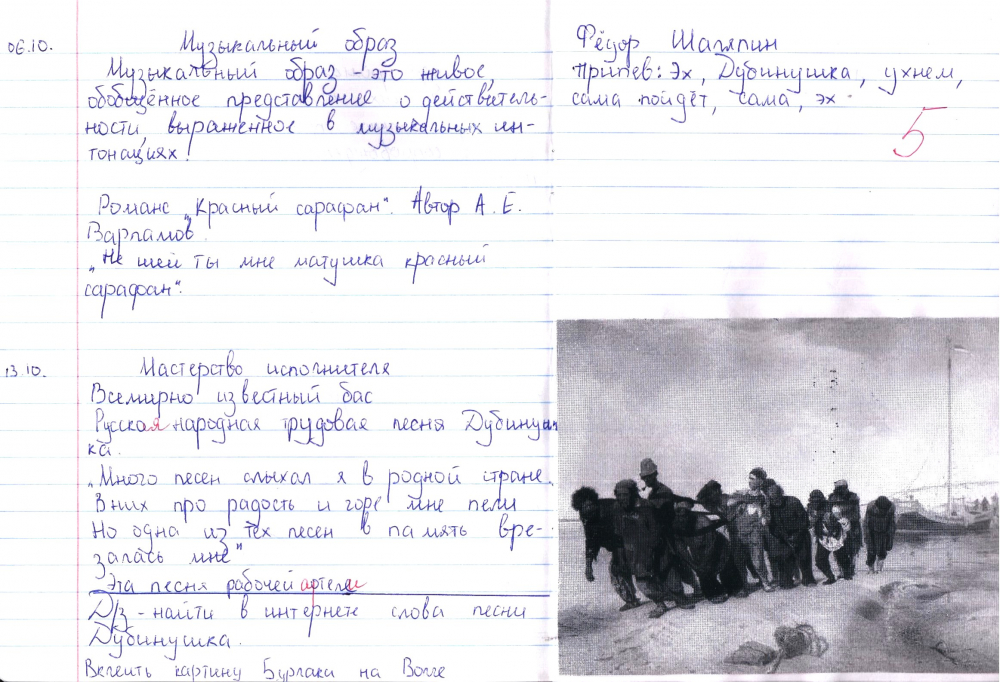 06.10.
Музыкальный образ
Музыкальный образ - это живое,
обобщённое представление о действитель-
ности, выраженное в музыкальных ин-
тонациях!
Романс „Красный сарафан". Автор А. Е.
Варламов.
„Не шей ты мне матушка красный
сарафан".
13.10.
Мастерство исполнителя
Всемирно известный бас
Русская народная трудовая песня Дубинуш
ка.
„Много песен слыхал я в родной стране.
В них про радость и горе мне пели
Но одна из тех песен в память вре-
залась мне"
Эта песня рабочей артели
Д/з - найти в интернете слова песни
Дубинушка.
Вклеить картину Бурлаки на Волге
Фёдор Шаляпин
Припев: Эх, Дубинушка, ухнем,
сама пойдёт, сама, эх.
5